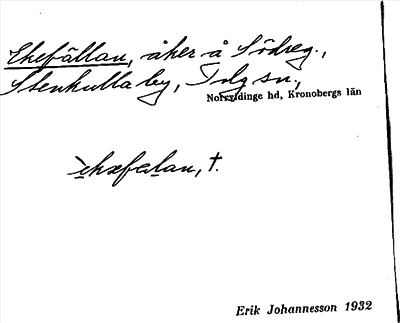 Ekefällan, åker å Södreg.,
Stenkulla by, Tolg sn.,
Norrvidinge hd, Kronobergs län
†.
Erik Johannesson 1932